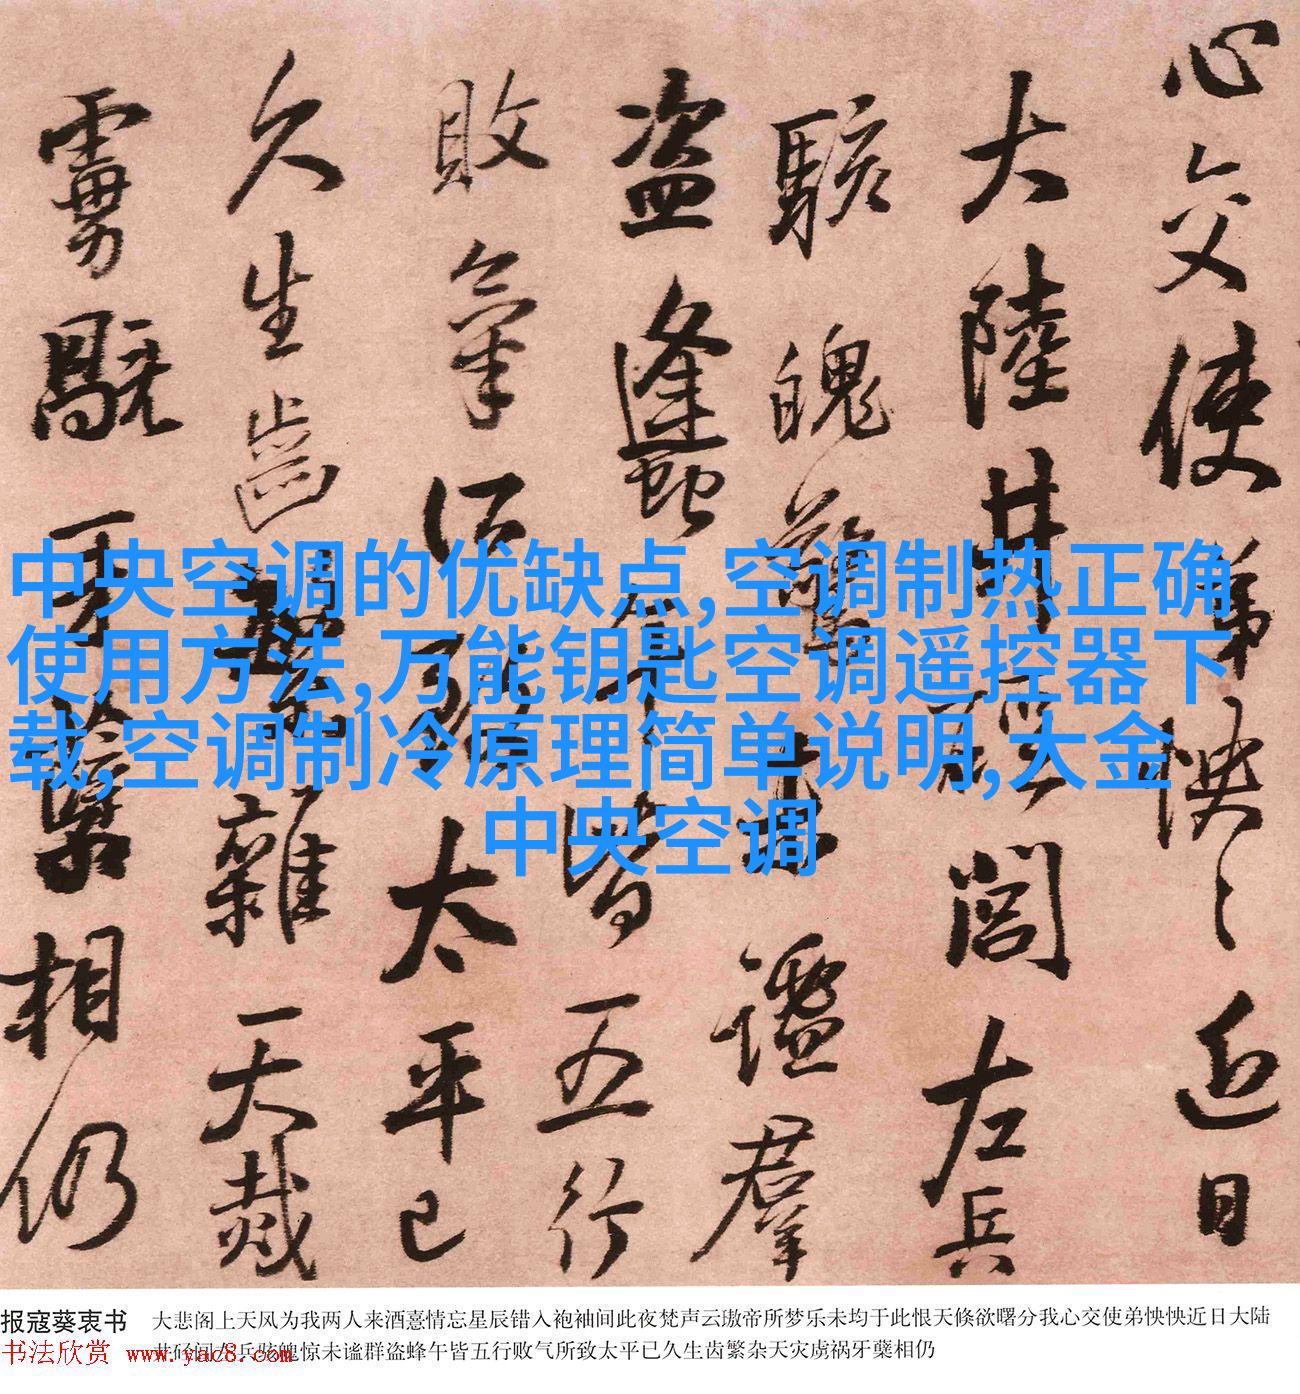 心交使弟怏々近日
大陸井閤左兵
駭魄驚未謐羣
盜蠭午皆五行
敗氣所致太平已
久生齒繁雜天烖
相仍
中央空调的优缺点,空调制热正确
使用方法,万能钥匙空调遥控器下
载,空调制冷原理简单说明,大金
中央空调
报寇葵衷书 大悲阁上天风为我两人来酒憙情忘星辰错入袍袖间此夜梵声云璈帝所梦乐未均于此恨天倏欲曙分我心交使弟怏怏近日大陆
左兵骇魄惊未谧群盗蜂午皆五行败气所致太平已久生齿繁杂天灾虏祸牙蘖相仍
书法欣赏 www.yac8.com